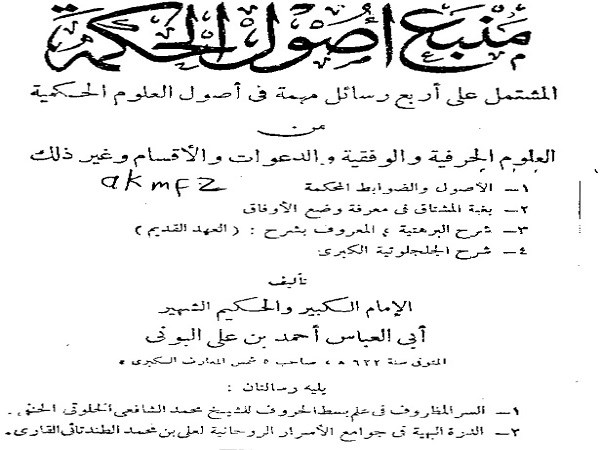 منبع أصول الحكمة
المشتمل على أربع رسائل مهمة فى أصول العلوم الحكمية
من
العلوم الحرفية والوفقية والدعوات والأقسام وغير ذلك
١ـ الأصول والضوابط المحكمة akmfz
٢ـ بغية المشتاق فى معرفة وضع الأوفاق
٣ـ شرح البرهتية ، المعروف بشرح : ( العهد القديم )
٤ـ شرح الجلجلوتية الكبرى
تأليف
الإمام الكبير والحكيم الشهير
أبي العباس أحمد بن على البونى
المتوفى سنة ٦٢٢ هـ ، صاحب ٥ شمس المعارف الكبرى ٥
يليه رسالتان :
١ـ السر المظروف فى علم بسط الحروف للشيخ محمد الشافعى الخلوتى الحنفى.
٢ـ الدرة البهية فى جوامع الأسرار الروحانية لعلى بن محمد الطندتائى القارى.